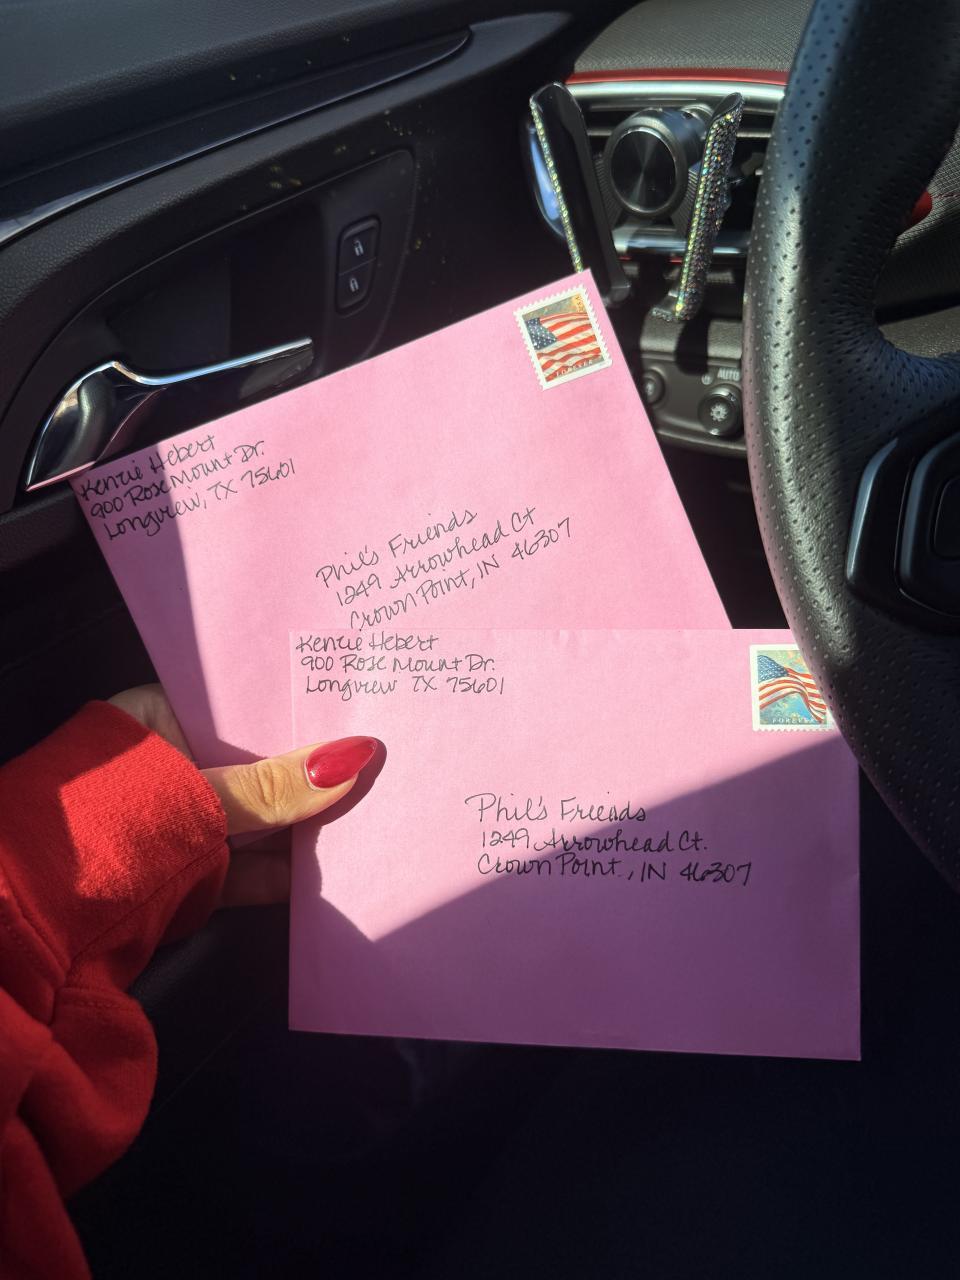 AUTO
USA
FOREVER
Kenzie Hebert
900 Rose Mount Dr.
Longview, TX 75601
Phil's Friends
1249 Arrowhead Ct
Crown Point, IN 46307
Kenzie Hebert
900 Rose Mount Dr.
Longview TX 75601
FOREVER
Phil's Friends
1249 Arrowhead Ct.
Crown Point, IN 46307